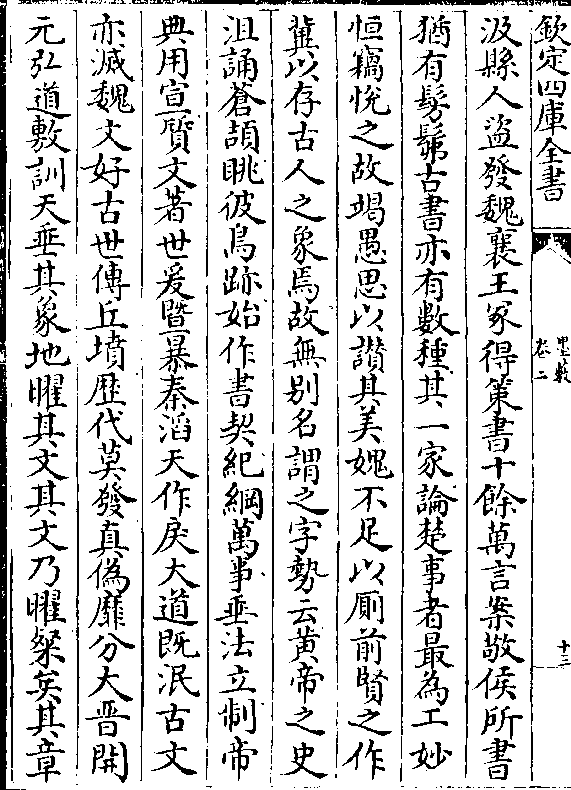 欽定四庫全書
墨藪
卷二
十三
汲縣人盜發魏襄王冢得策書十餘萬言案敬侯所書
猶有髣髴古書亦有數種其一家論楚事者最為工妙
恒竊悅之故竭愚思以讃其美媿不足以厠前賢之作
冀以存古人之象焉故無别名謂之字勢云黃帝之史
沮誦蒼頡眺彼鳥跡始作書契紀綱萬事垂法立制帝
典用宣質文著世爰曁暴秦滔天作戾大道既泯古文
亦滅魏文好古世傳丘墳歴代莫發真偽靡分大晉開
元弘道敷訓天垂其象地曜其文其文乃曜粲矣其章